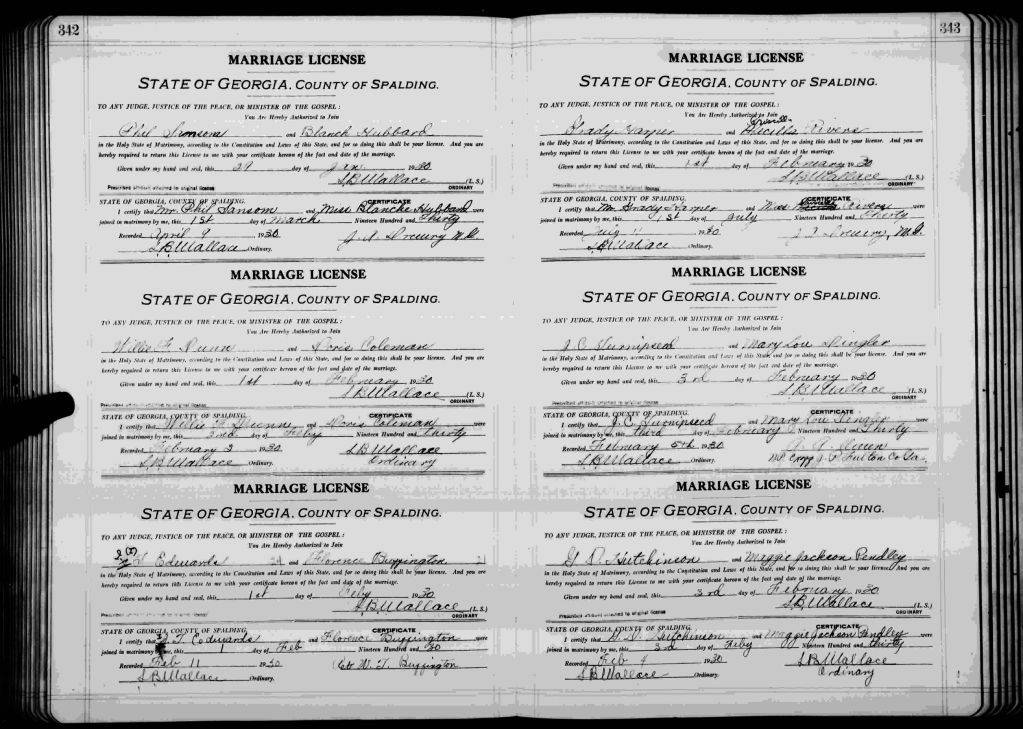 342
MARRIAGE LICENSE
STATE OF GEORGIA, COUNTY OF SPALDING.
TO ANY JUDGE, JUSTICE OF THE PEACE, OR MINISTER OF THE GOSPEL:
You Are Hereby Authorized to Join
Phil Sansom and Blanch Hubbard
in the Holy State of Matrimony, according to the Constitution and Laws of this State, and for so doing this shall be your license. And you are
hereby required to return this License to me with your certificate hereon of the fact and date of the marriage.
Given under my hand and seal, this 29 day of Jan 1930
S.B. Wallace (L. S.)
Prescribed affidavit attached to original license ORDINARY
STATE OF GEORGIA, COUNTY OF SPALDING. CERTIFICATE
I certify that Mr. Phil Sansom and Miss Blanche Hubbard were
joined in matrimony by me, this 1st day of March Nineteen Hundred and Thirty
Recorded April 9 1930 J. A. Drewry M.G.
S.B. Wallace Ordinary.
MARRIAGE LICENSE
STATE OF GEORGIA, COUNTY OF SPALDING.
TO ANY JUDGE, JUSTICE OF THE PEACE, OR MINISTER OF THE GOSPEL:
You Are Hereby Authorized to Join
Willie F. Dunn and Doris Coleman
in the Holy State of Matrimony, according to the Constitution and Laws of this State, and for so doing this shall be your license. And you are
hereby required to return this License to me with your certificate hereon of the fact and date of the marriage.
Given under my hand and seal, this 1st day of February 1930
S.B. Wallace (L. S.)
Prescribed affidavit attached to original license ORDINARY
STATE OF GEORGIA, COUNTY OF SPALDING. CERTIFICATE
I certify that Willie F. Dunn and Doris Coleman were
joined in matrimony by me, this 2nd day of Feby Nineteen Hundred and thirty
Recorded February 3 1930 S.B. Wallace
S.B. Wallace Ordinary. Ordinary
MARRIAGE LICENSE
STATE OF GEORGIA, COUNTY OF SPALDING.
TO ANY JUDGE, JUSTICE OF THE PEACE, OR MINISTER OF THE GOSPEL:
You Are Hereby Authorized to Join
T. Edwards 24 and Florence Buffington 21
in the Holy State of Matrimony, according to the Constitution and Laws of this State, and for so doing this shall be your license. And you are
hereby required to return this License to me with your certificate hereon of the fact and date of the marriage.
Given under my hand and seal, this 1st day of Feby 1930
S.B. Wallace (L. S.)
Prescribed affidavit attached to original license ORDINARY
STATE OF GEORGIA, COUNTY OF SPALDING. CERTIFICATE
I certify that T. Edwards and Florence Buffington were
joined in matrimony by me, this 1 day of Feb Nineteen Hundred and 30
Recorded Feb 11 1930 W. T. Buffington
S.B. Wallace Ordinary.
343
MARRIAGE LICENSE
STATE OF GEORGIA, COUNTY OF SPALDING.
TO ANY JUDGE, JUSTICE OF THE PEACE, OR MINISTER OF THE GOSPEL:
You Are Hereby Authorized to Join
Grady Harper and Rivers
in the Holy State of Matrimony, according to the Constitution and Laws of this State, and for so doing this shall be your license. And you are
hereby required to return this License to me with your certificate hereon of the fact and date of the marriage.
Given under my hand and seal, this 1st day of February 1930
S.B. Wallace (L. S.)
Prescribed affidavit attached to original license ORDINARY
STATE OF GEORGIA, COUNTY OF SPALDING. CERTIFICATE
I certify that Mr. Grady Harper and Miss Rivers were
joined in matrimony by me, this 1st day of July Nineteen Hundred and Thirty
Recorded July 11 1930 Drewry, M.G.
S.B. Wallace Ordinary.
MARRIAGE LICENSE
STATE OF GEORGIA, COUNTY OF SPALDING.
TO ANY JUDGE, JUSTICE OF THE PEACE, OR MINISTER OF THE GOSPEL:
You Are Hereby Authorized to Join
J. C. Turnipseed and Mary Lou Dingler
in the Holy State of Matrimony, according to the Constitution and Laws of this State, and for so doing this shall be your license. And you are
hereby required to return this License to me with your certificate hereon of the fact and date of the marriage.
Given under my hand and seal, this 3rd day of February 1930
S.B. Wallace (L. S.)
Prescribed affidavit attached to original license ORDINARY
STATE OF GEORGIA, COUNTY OF SPALDING. CERTIFICATE
I certify that J. C. Turnipseed and Mary Lou Dingler were
joined in matrimony by me, this third day of February Nineteen Hundred and Thirty
Recorded February 5th 1930
S.B. Wallace Ordinary. Fulton Co Ga.
MARRIAGE LICENSE
STATE OF GEORGIA, COUNTY OF SPALDING.
TO ANY JUDGE, JUSTICE OF THE PEACE, OR MINISTER OF THE GOSPEL:
You Are Hereby Authorized to Join
G. D. Hutchinson and Maggie Jackson Pendley
in the Holy State of Matrimony, according to the Constitution and Laws of this State, and for so doing this shall be your license. And you are
hereby required to return this License to me with your certificate hereon of the fact and date of the marriage.
Given under my hand and seal, this 3rd day of February 1930
S.B. Wallace (L. S.)
Prescribed affidavit attached to original license ORDINARY
STATE OF GEORGIA, COUNTY OF SPALDING. CERTIFICATE
I certify that G. D. Hutchinson and Maggie Jackson Pendley were
joined in matrimony by me, this 3rd day of Feby Nineteen Hundred and thirty
Recorded Feb 4 1930 S.B. Wallace
S.B. Wallace Ordinary. Ordinary